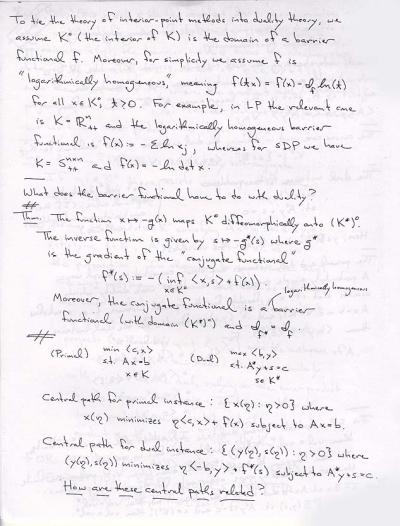 To tie the theory of interior-point methods into duality theory, we
assume K° (the interior of K) is the domain of a barrier
functional f. Moreover, for simplicity we assume f is
"logarithmically homogeneous", meaning f(tx) = f(x) - ϑ_f ln(t)
for all x ∈ K°, t > 0. For example, in LP the relevant cone
is K = ℝⁿ₊₊ and the logarithmically homogeneous barrier
functional is f(x) := - Σ ln x_j, whereas for SDP we have
K = S₊₊ⁿˣⁿ and f(x) = - ln det x.
What does the barrier functional have to do with duality?
Thm: The function x ↦ -g(x) maps K° diffeomorphically onto (K*)°.
The inverse function is given by s ↦ -g*(s) where g*
is the gradient of the "conjugate functional"
f*(s) := - ( inf_{x∈K°} <x,s> + f(x) ).
logarithmically homogeneous
Moreover, the conjugate functional is a barrier
functional (with domain (K*)°) and ϑ_{f*} = ϑ_f.
(Primal) min <c,x> (Dual) max <b,y>
s.t. Ax = b s.t. A*y + s = c
x ∈ K s ∈ K*
Central path for primal instance: { x(η) : η > 0 } where
x(η) minimizes η<c,x> + f(x) subject to Ax = b.
Central path for dual instance: { (y(η), s(η)) : η > 0 } where
(y(η), s(η)) minimizes η<-b,y> + f*(s) subject to A*y + s = c.
How are these central paths related?